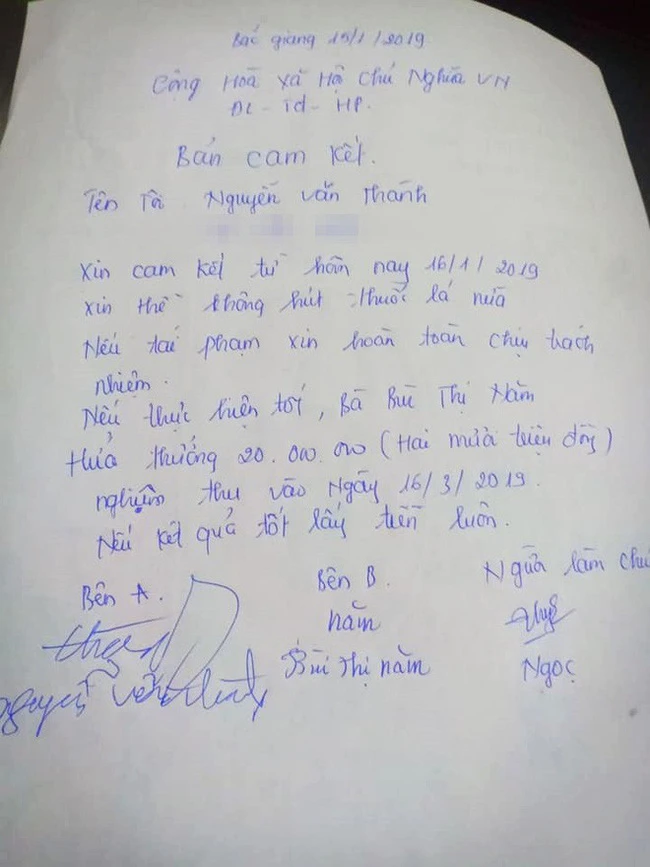 Bắc giang 15/1/2019
Cộng Hoà Xã Hội Chủ Nghĩa VN
ĐL - Td - HP.
Bản cam kết.
Tên Tôi Nguyễn văn Thành
Xin cam kết từ hôm nay 16/1/2019
Xin thề không hút thuốc lá nữa
Nếu tái phạm xin hoàn toàn chịu trách
nhiệm.
Nếu thực hiện tốt, Bà Bùi Thị Năm
Hứa thưởng 20.000.000 (Hai mươi triệu đồng)
nghiệm thu vào Ngày 16/3/2019.
Nếu kết quả tốt lấy tiền luôn.
Bên A. Bên B. Người làm chứ
năm
Nguyễn văn Thành Bùi Thị năm Ngọc